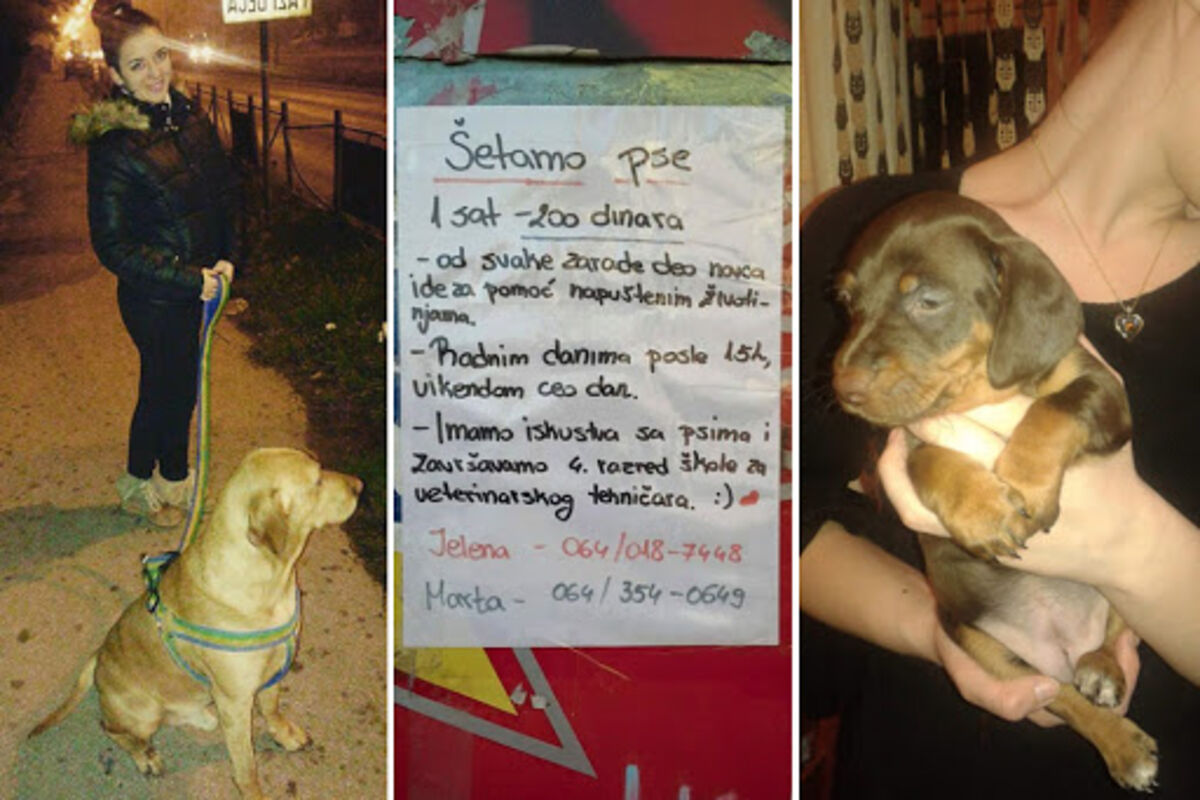 PAZI DECA
Šetamo pse
1 sat - 200 dinara
- od svake zarade deo novca
ide za pomoć napuštenim životi-
njama.
- Radnim danima posle 15h,
vikendom ceo dan.
- Imamo iskustva sa psima i
završavamo 4. razred škole za
veterinarskog tehničara. :) ♥
Jelena - 064/018-7448
Marta - 064/354-0649